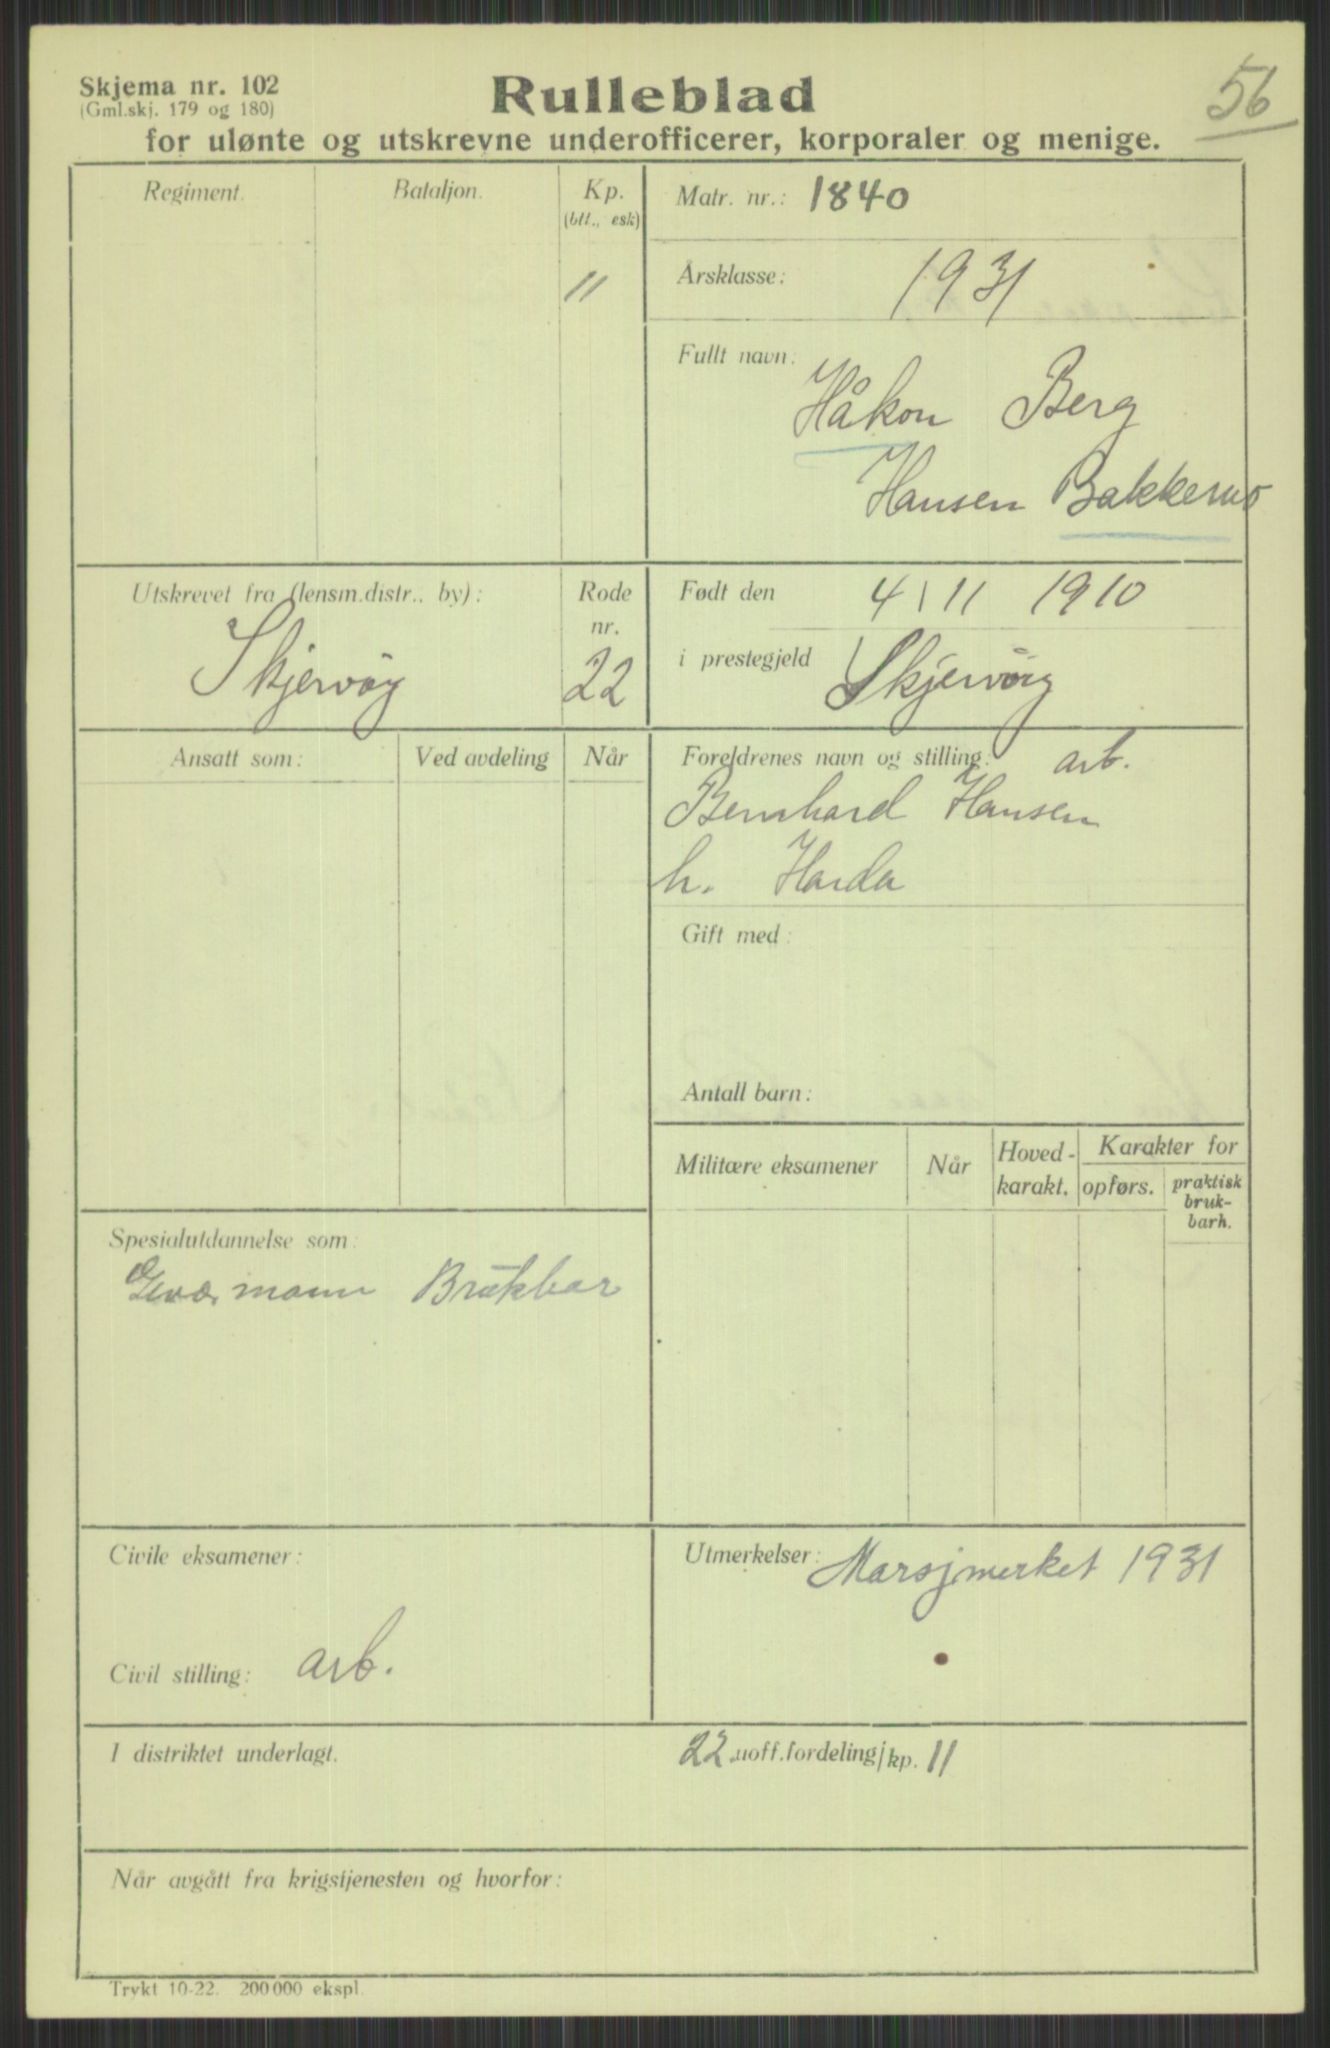 56
Skjema nr. 102
(Gml.skj. 179 og 180)
Rulleblad
for ulønte og utskrevne underofficerer, korporaler og menige.
Regiment.
Bataljon.
Kp.
(btt., esk)
11
Matr. nr.: 1840
Årsklasse: 1931
Fullt navn:
Håkon Berg
Hansen Bakkemo
Utskrevet fra (lensm.distr., by):
Skjervöy
Rode
nr.
22
Født den 4/11 1910
i prestegjeld Skjervöy
Ansatt som:
Ved avdeling
Når
Foreldrenes navn og stilling: arb.
Bernhard Hansen
h. Harda
Gift med:
Antall barn:
Militære eksamener
Når
Hoved-
karakt.
Karakter for
opførs.
praktisk
bruk-
barh.
Spesialutdannelse som:
mann Brukbar
Civile eksamener:
Civil stilling: arb.
Utmerkelser: Marsjmerket 1931
I distriktet underlagt.
22. uoff.fordeling/kp. 11
Når avgått fra krigstjenesten og hvorfor:
Trykt 10-22. 200 000 ekspl.